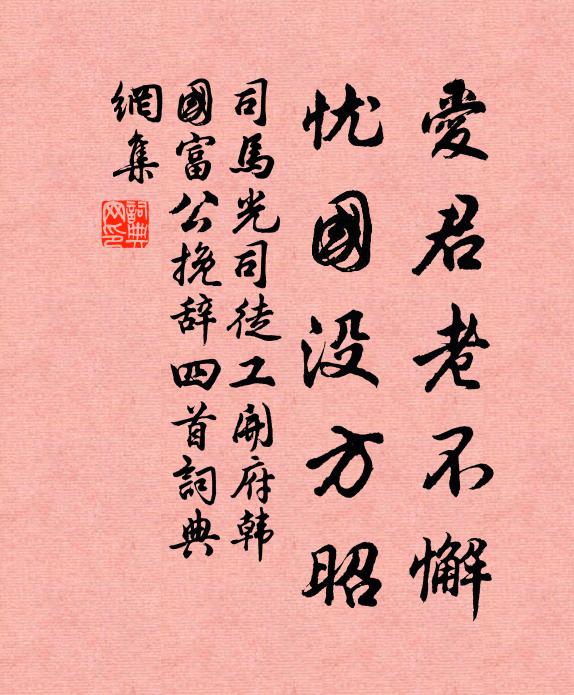 愛君老不懈
忧國没方昭
司馬光司徒工開府韩
國富公挽辞四首詞典
網集
詞典
网印